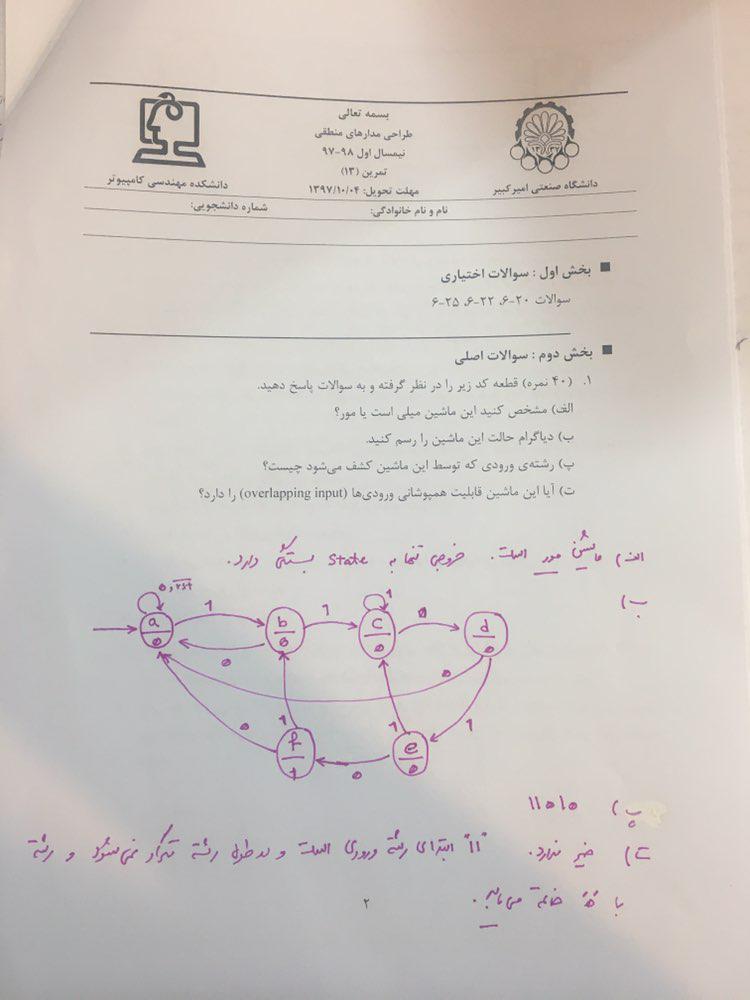 بسمه تعالی
طراحی مدارهای منطقی
نیمسال اول ۹۸-۹۷
تمرین (۱۳)
مهلت تحویل: ۱۳۹۷/۱۰/۰۴
دانشگاه صنعتی امیرکبیر
دانشکده مهندسی کامپیوتر
نام و نام خانوادگی: شماره دانشجویی:
بخش اول : سوالات اختیاری
سوالات ۲۰-۶، ۲۲-۶، ۲۵-۶
بخش دوم : سوالات اصلی
۱. (۴۰ نمره) قطعه کد زیر را در نظر گرفته و به سوالات پاسخ دهید.
الف) مشخص کنید این ماشین میلی است یا مور؟
ب) دیاگرام حالت این ماشین را رسم کنید.
پ) رشته‌ی ورودی که توسط این ماشین کشف می‌شود چیست؟
ت) آیا این ماشین قابلیت همپوشانی ورودی‌ها (overlapping input) را دارد؟
الف) ماشین مور است. خروجی تنها به state بستگی دارد.
ب)
0, rst
1 1 1 0
a b c d
0 0 0 0
0 0
0 1 1 1
f e
1 0 0
پ) 11010
ت) خیر ندارد. "11" ابتدای رشته ورودی است و در طول رشته تکرار نمی‌شود و رشته
با "0" خاتمه می‌یابد.
۲